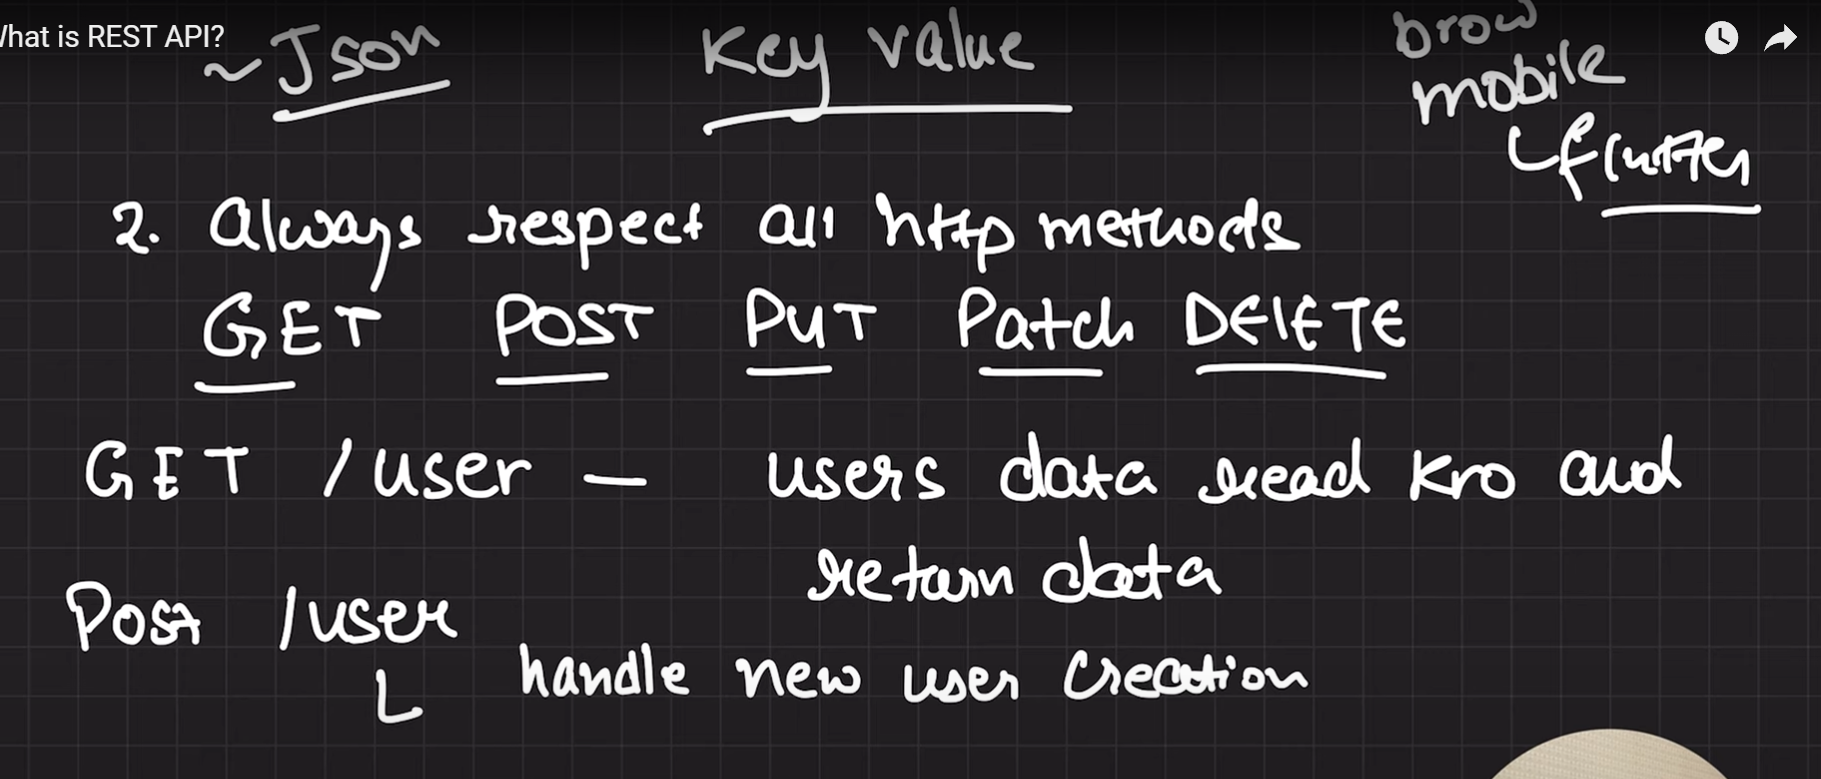 What is REST API?
~ Json Key value brow
mobile
flutter
2. Always respect all http methods
GET POST PUT Patch DELETE
GET /user — users data read kro and
return data
Post /user
handle new user creation